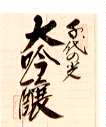 千代の光
大吟醸